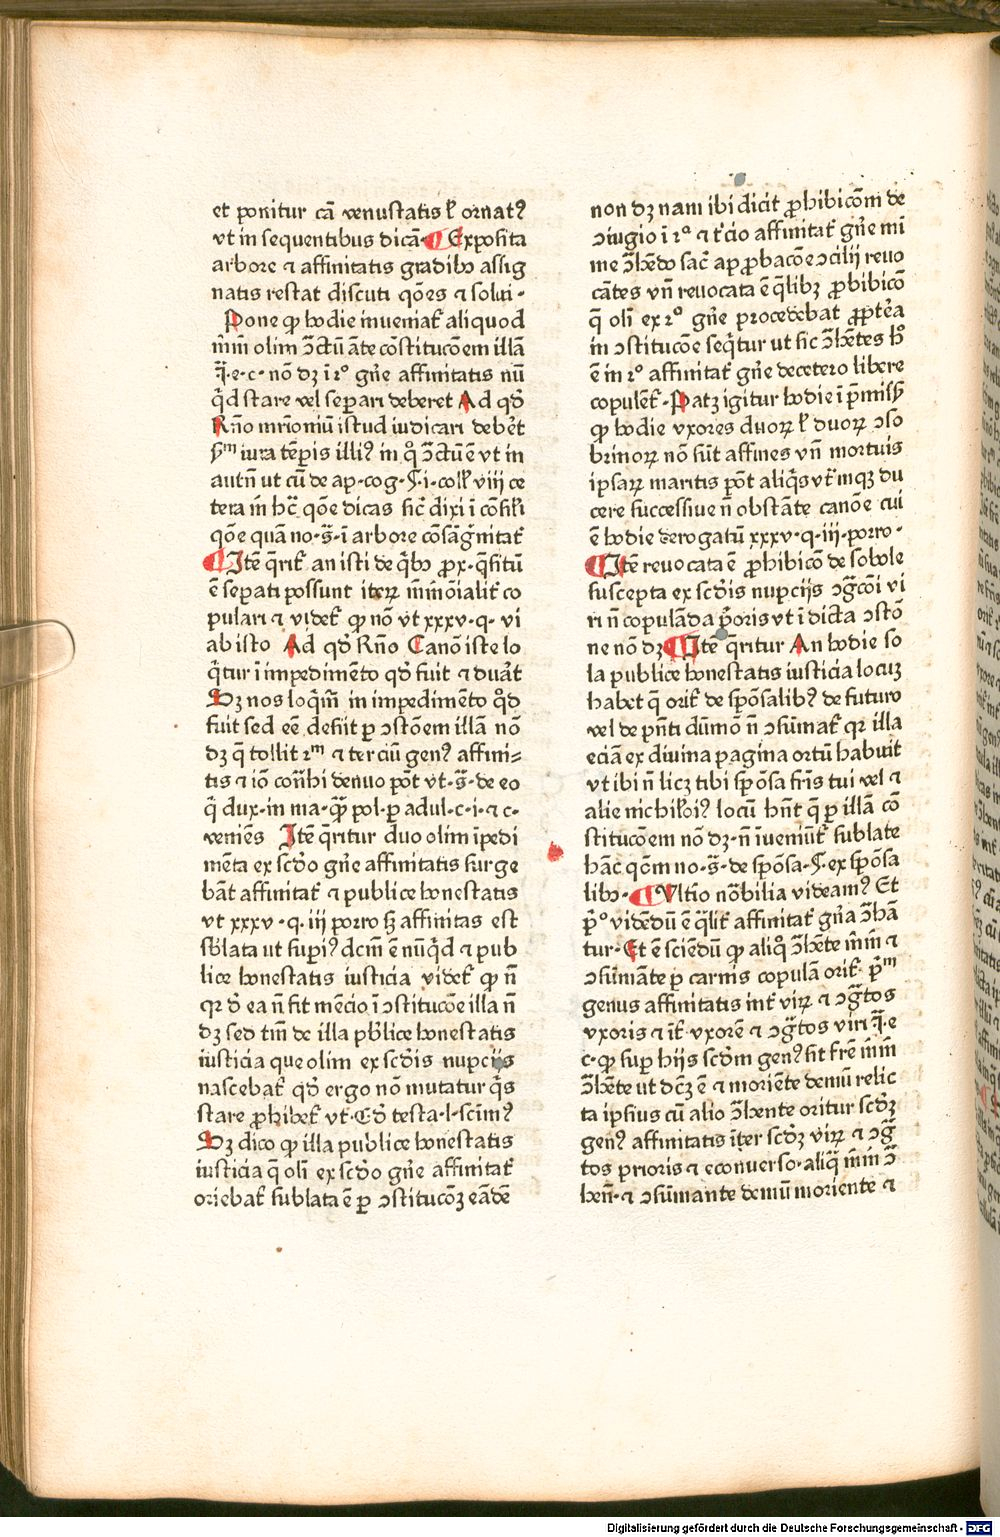 et ponitur cā venustatis ł ornatꝰ
vt in sequentibus dicā· ¶ Exposita
arbore ⁊ affinitatis gradibꝫ assig
natis restat discuti qōes ⁊ solui·
Pone ꝙ hodie inueniat᷑ aliquod
m̄m̄ olim ꝯ̄ctū āte cōstitucōem illā
nō dꝫ ī 2º gn̄e affinitatis nū
q̇d stare vel seꝑari deberet Ad qď
Rn̄o mr̄ioniū istud iudicari debet
iura tēꝑis illiꝰ in qͦ ꝯ̄ctū ē vt in
autn̄ ut cū de ap·cog·§·i·coll᷑ viii ce
tera in hāc qōe dicas sic̄ dixi ī cōsil᷑i
qōe quā no·s̄·ī arbore cōsāg̈nitat᷑
¶ Itē q̄rit᷑ an isti de q̄bꝫ ꝓx·q̄situ
ē seꝑati possunt iteꝝ m̄m̄oīalit᷑ co
pulari ⁊ videt᷑ ꝙ nō vt xxxv·q·vi
ab isto Ad qď Rn̄o Canō iste lo
q̄tur ī impedimēto qď fuit ⁊ duāt
Sꝫ nos loq̄m̄ in impedimēto qͦd
fuit sed eē desiit ꝑ ꝯstōem illā nō
dꝫ q̄ tollit 2ᵐ ⁊ terciū genꝰ affini⸗
tis ⁊ iō con̄hi denuo pōt vt·s̄·de eo
q̄ dux·in ma·q̄ꝫ pol·ꝑ adul·c·i·⁊ c·
veniēs Itē q̄ritur duo olim īpedi
mēta ex scďo gn̄e affinitatis surge
bāt affinitat᷑ ⁊ publice honestatis
vt xxxv·q·iii porro sꝫ affinitas est
sb̄lata ut supiꝰ dcm̄ ē nūq̇d ⁊ pub
lice honestatis iusticia videt᷑ ꝙ n̄
qꝛ ď ea n̄ fit mēcio ī ꝯstitucōe illa n̄
dꝫ sed tm̄ de illa pb̄lice honestatis
iusticia que olim ex scďis nupcijs
nascebat᷑ qď ergo nō mutatur q̄s
stare ꝓhibet᷑ vt·Cď testa·l·scim̄ꝰ
Sꝫ dico ꝙ illa publice honestatis
iusticia q̄ oli ex scďo gn̄e affinitat᷑
oriebat᷑ sublata ē ꝑ ꝯstitucōꝫ eādē
non dꝫ nam ibi dicit ꝓhibicōm de
ꝯiugio ī 2º ⁊ t᷑cio affinitat᷑ gn̄e mi
me ꝯ̄hēdo sac̄ ap ꝓbacōe ꝯcilij reuo
cātes vn̄ reuocata ē q̄libꝫ ꝓhibicō
q̄ oli ex 2º gn̄e procedebat ꝓptēa
in ꝯstitucōe seq̄tur ut sic ꝯ̄hētes hͦ
ē in 2º affinitat᷑ gn̄e decetero libere
copulent᷑·Patꝫ igitur hodie ī p̄missꝭ
ꝙ hodie vxores duoꝝ ł duoꝝ ꝯso
brinoꝝ nō sūt affines vn̄ mortuis
ipsaꝝ maritis pōt aliq̄s vt᷑mqꝫ du
cere successiue n̄ obstāte canōe cui
ē hodie derogatū xxxv·q·iii·porro·
¶ Itē reuocata ē ꝓhibicō de sobole
suscepta ex scďis nupcijs ꝯg̈cōi vi
ri n̄ copulāda p̄oris vt ī dicta ꝯstō
ne nō dꝫ ¶ Itē q̄ritur An hodie so
la publice honestatis iusticia locuꝫ
habet q̄ orit᷑ de spōsalibꝰ de futuro
vel de pn̄ti dūmō n̄ ꝯsūmat᷑ qꝛ illa
eciā ex diuina pagina ortū habuit
vt ibi n̄ licꝫ tibi spōsa fr̄is tui vel ⁊
alie nichil᷑oiꝰ locū hn̄t q̄ ꝑ illā cō
stitucōem nō dꝫ·n̄ īueniūt᷑ sublate
hāc qōm no·s̄·de spōsa·§·ex spōsa
libꝫ·¶ Vltīo nōbilia videamꝰ Et
p̄º vidēdū ē q̄lit᷑ affinitat᷑ gn̄a ꝯ̄hā
tur·Et ē sciēdū ꝙ aliqͦ ꝯ̄hēte m̄m̄ ⁊
ꝯsūmāte ꝑ carnis copulā orit᷑ p̄ᵐ
genus affinitatis int᷑ viꝝ ⁊ ꝯg̈tos
vxoris ⁊ īt᷑ vxorē ⁊ ꝯg̈tos viri q̄·e
c·ꝙ suꝑ hijs scďm genꝰ fit fr̄e m̄m̄
ꝯ̄hēte ut dcꝫ ē ⁊ moriēte demū relic
ta ipsius cū alio ꝯ̄hente oritur scďꝫ
genꝰ affinitatis īter scďꝫ viꝝ ⁊ ꝯg̈
tos prioris ⁊ econuerso·aliq̄ m̄m̄ ꝯ̄
hen̄·⁊ ꝯsūmante demū moriente ⁊
Digitalisierung gefördert durch die Deutsche Forschungsgemeinschaft - DFG